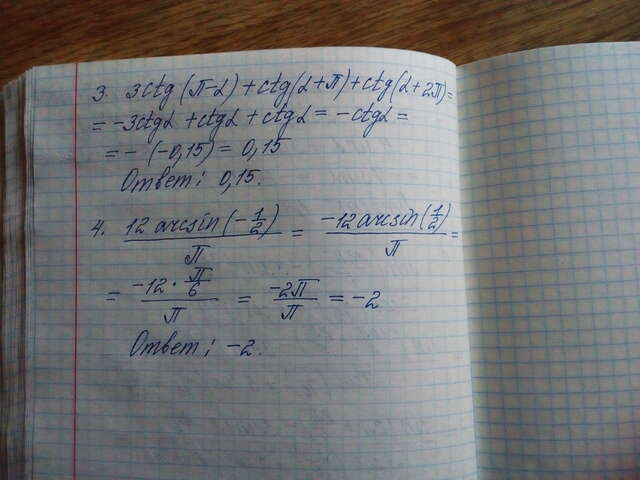 3. 3ctg(π-α)+ctg(α+π)+ctg(α+2π)=
= -3ctgα +ctgα +ctgα = -ctgα =
= -(-0,15) = 0,15
Ответ: 0,15.
4. 12 arcsin(-1/2)/π = -12 arcsin(1/2)/π =
= -12 · π/6/π = -2π/π = -2
Ответ: -2.